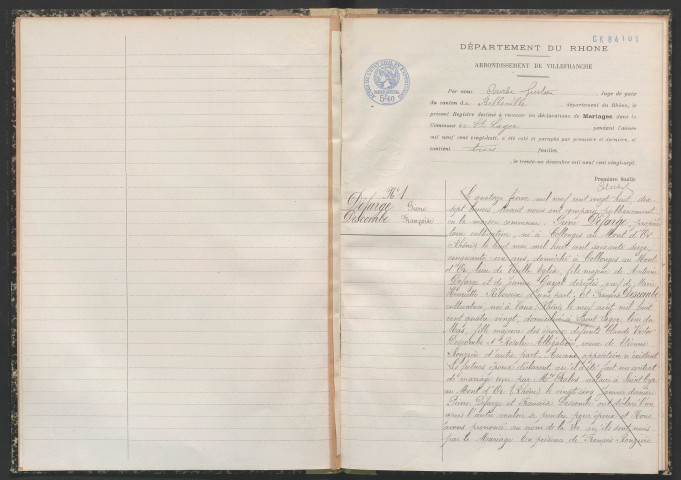 CK 84101
DÉPARTEMENT DU RHONE
ARRONDISSEMENT DE VILLEFRANCHE
Par nous, juge de paix
du canton de Belleville, département du Rhône, le
présent Registre destiné à recevoir les déclarations de Mariages dans la
Commune de St Lager pendant l'année
mil neuf cent vingt-huit, a été coté et paraphé par première et dernière, et
contient trois feuilles.
, le trente-un décembre mil neuf cent vingt-sept.
Première feuille
N° 1
Défarge Pierre
Descombe Françoise
Le quatorze février mil neuf cent vingt huit, dix
sept heures, devant nous ont comparu publiquement
en la maison commune: Pierre Défarge,
cultivateur, né à Collonges au Mont d'Or
(Rhône) le huit mai mil huit cent soixante seize,
cinquante-un ans, domicilié à Collonges au Mont
d'Or, fils majeur de Antoine
Défarge et de Jeanne Gayet décédés, veuf de Marie
Henriette d'une part, Et Françoise Descombe
cultivatrice, née à Vaux, Rhône le neuf août mil huit
cent quatre vingt, domiciliée à Saint Lager, lieu du
Mas, fille majeure des époux défunts Claude Victor
Descombe et Rosalie, veuve de Etienne
d'autre part. Aucune opposition n'existant
Les futurs époux déclarent qu'il a été fait un contrat
de mariage reçu par Me notaire à Saint Cyr
au Mont d'Or (Rhône) le vingt cinq janvier dernier.
Pierre Défarge et Françoise Descombe ont déclaré l'un
après l'autre vouloir se prendre pour époux et Nous
avons prononcé au nom de la loi qu'ils sont unis
par le Mariage. En présence de François